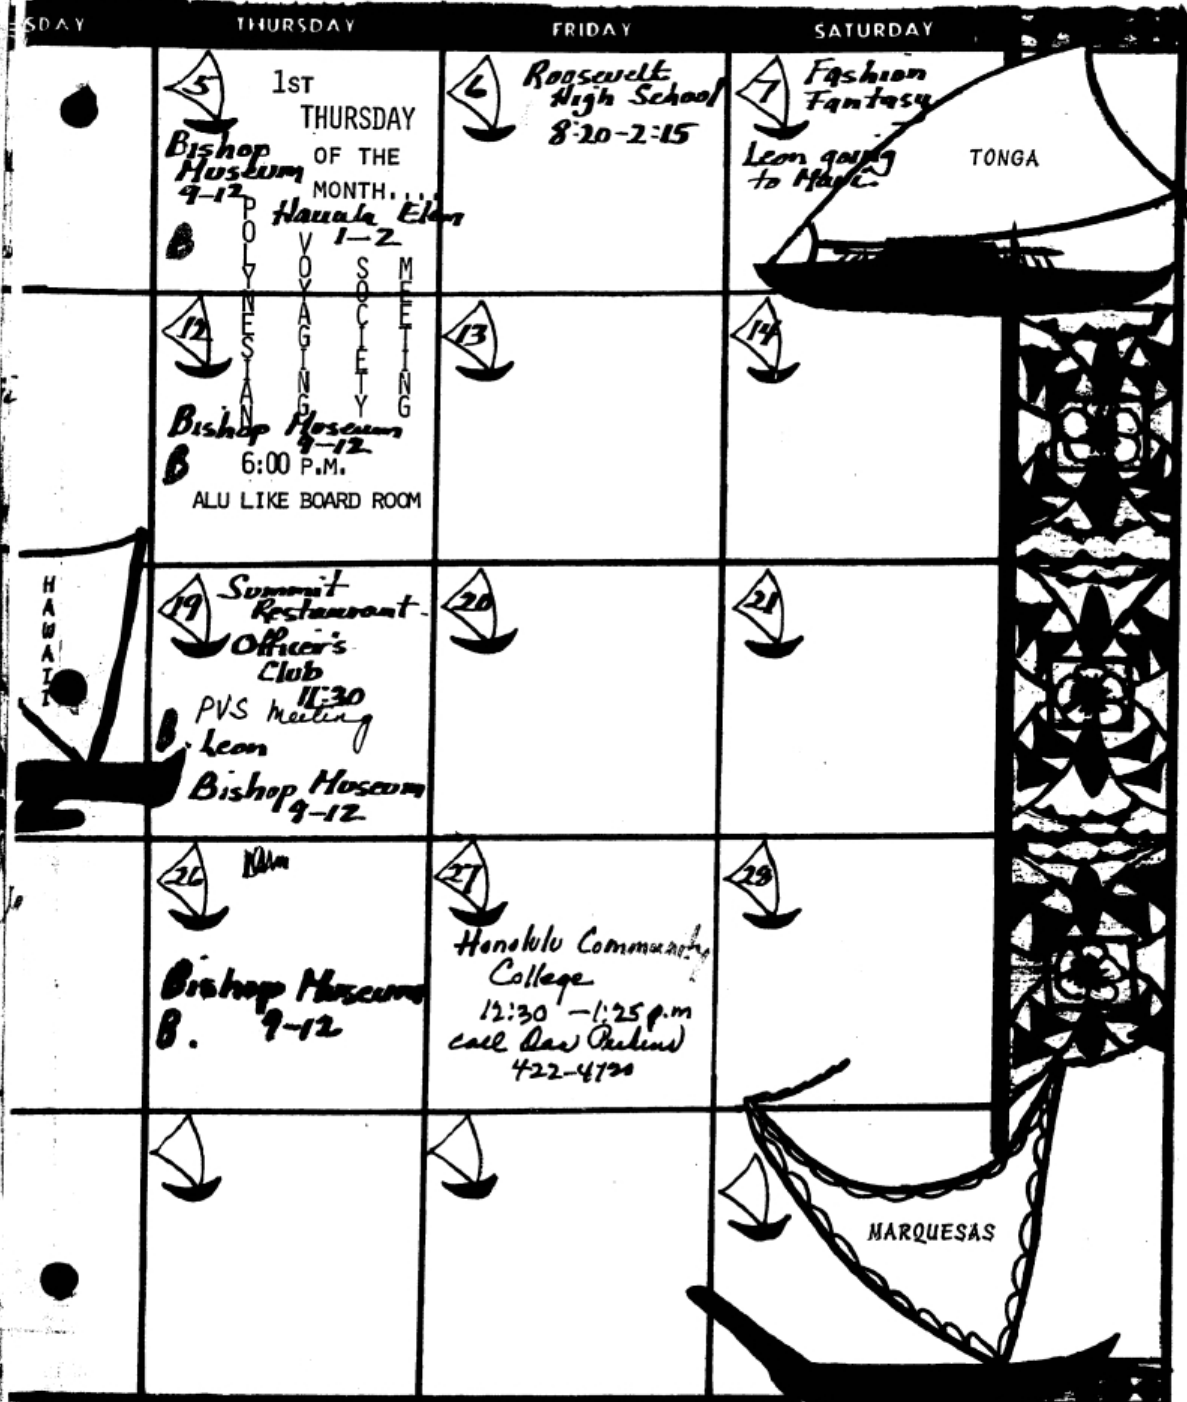 SDAY
THURSDAY
FRIDAY
SATURDAY
5
1ST
THURSDAY
OF THE
MONTH....
Bishop
Museum
9-12
Hauula Elem
1-2
B
POLYNESIAN
VOYAGING
SOCIETY
MEETING
6
Roosevelt
High School
8:20-2:15
7
Fashion
Fantasy
Leon going
to Maui.
TONGA
12
Bishop Museum
9-12
B
6:00 P.M.
ALU LIKE BOARD ROOM
13
14
HAWAII
19
Summit
Restaurant-
Officer's
Club
11:30
PVS Meeting
B. Leon
Bishop Museum
9-12
20
21
26
Bishop Museum
B. 9-12
27
Honolulu Community
College
12:30 -1:25 p.m
call Dan
28
MARQUESAS